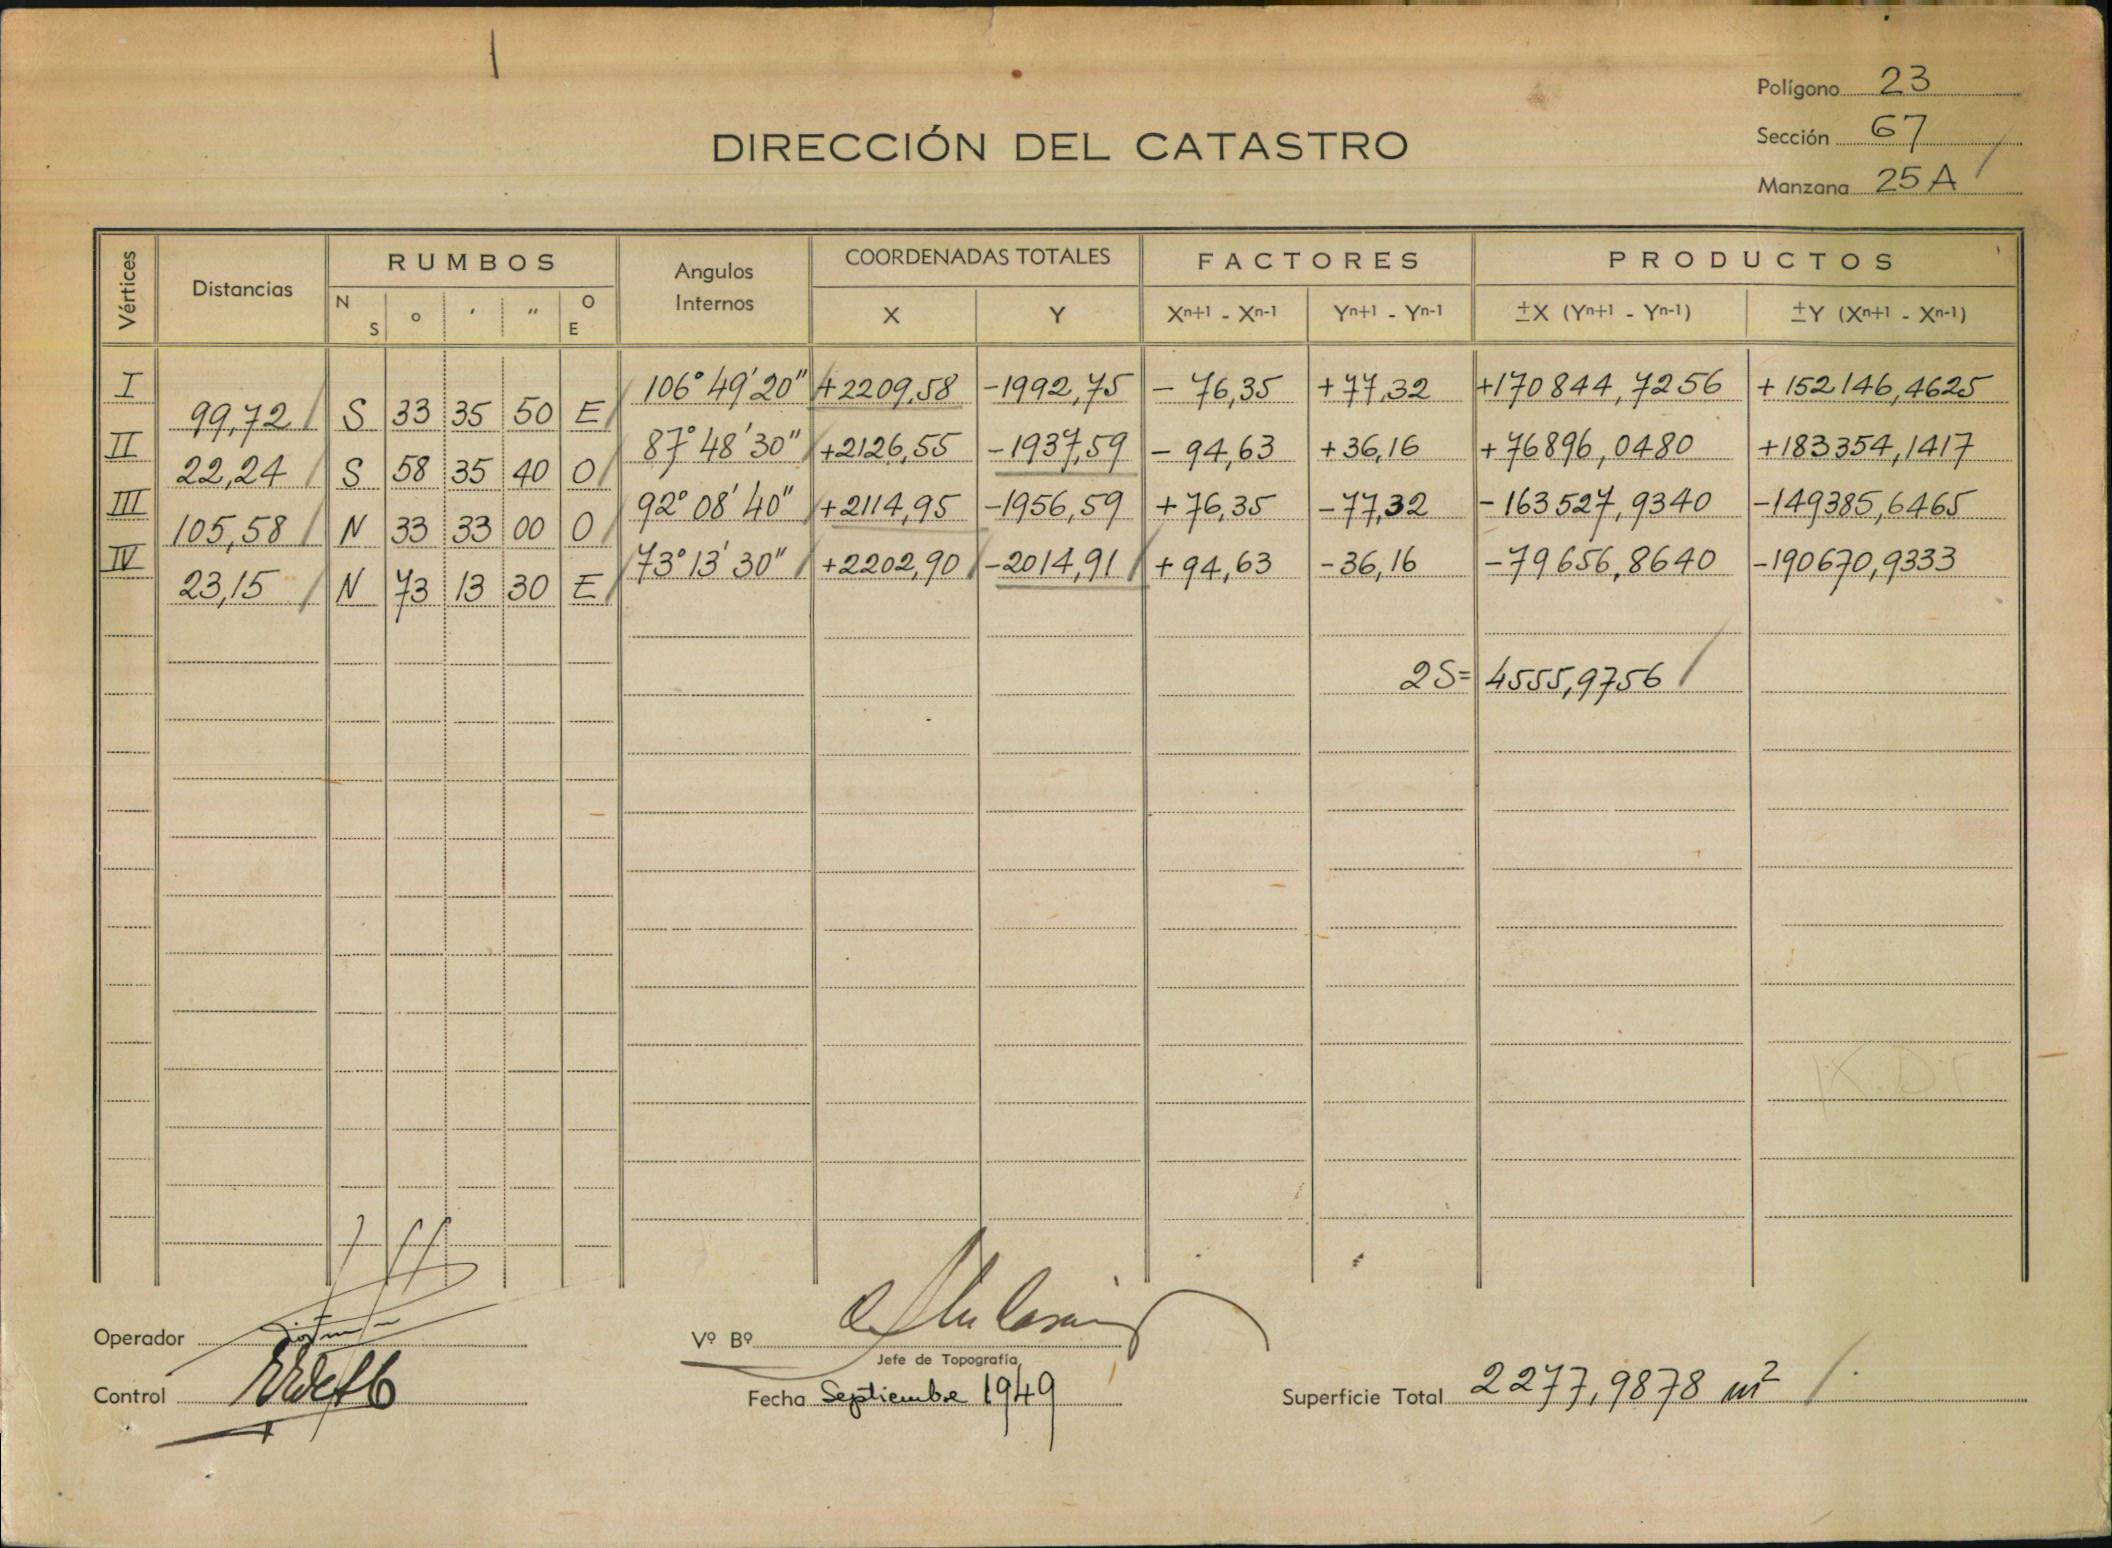 Polígono 23
DIRECCIÓN DEL CATASTRO
Sección 67
Manzana 25A
Vértices Distancias RUMBOS Angulos Internos COORDENADAS TOTALES FACTORES PRODUCTOS
N S ° ′ ″ O E X Y Xn+1 - Xn-1 Yn+1 - Yn-1 ±X (Yn+1 - Yn-1) ±Y (Xn+1 - Xn-1)
I 106° 49' 20" +2209,58 -1992,75 - 76,35 +77,32 +170844,7256 +152146,4625
99,72 S 33 35 50 E
II 87° 48' 30" +2126,55 -1937,59 - 94,63 +36,16 +76896,0480 +183354,1417
22,24 S 58 35 40 O
III 92° 08' 40" +2114,95 -1956,59 +76,35 -77,32 -163527,9340 -149385,6465
105,58 N 33 33 00 O
IV 73° 13' 30" +2202,90 -2014,91 +94,63 -36,16 -79656,8640 -190670,9333
23,15 N 73 13 30 E
2S= 4555,9756
Operador
Vº Bº
Jefe de Topografía
Control
Fecha Septiembre 1949
Superficie Total 2277,9878 m²